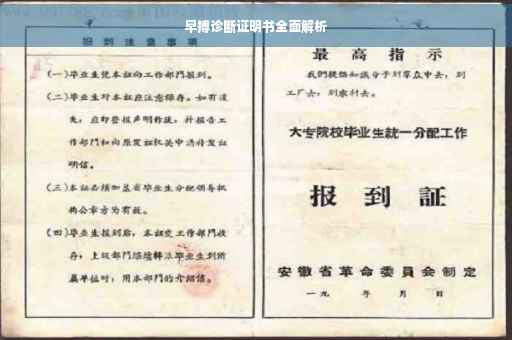 早搏诊断证明书全面解析
报到注意事项
(一)毕业生凭本证向工作部門报到。
(二)毕业生对本証应注意保存。如有遗
失,应即登报声明作废,并报告工
作部門和向原发証机关申請补发証
明信。
(三)本証必须加盖省毕业生分配領导机
构公章方为有效。
(四)毕业生报到后,本証交工作部門收
存;上級部門繼續轉派毕业生到所
属单位时,用本部門的介绍信。
最高指示
我們提倡知識分子到羣众中去,到
工厂去,到农村去。
大专院校毕业生統一分配工作
报到証
安徽省革命委員会制定
一九 年 月 日